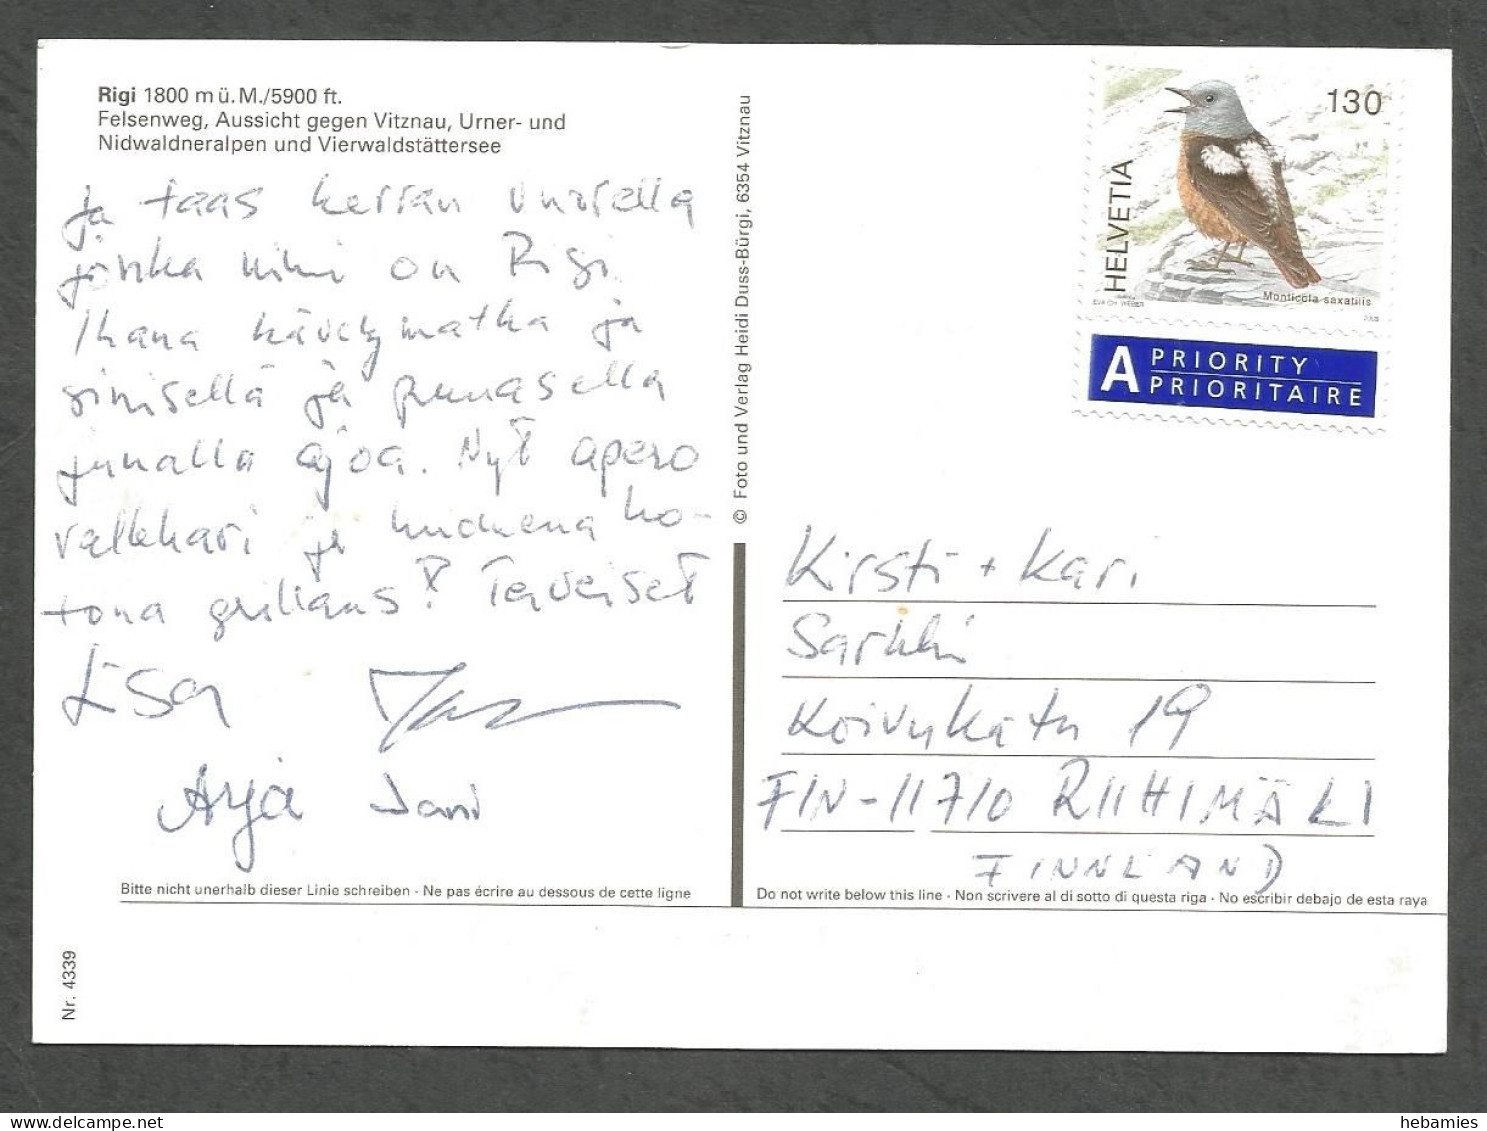 Rigi 1800 m ü. M./5900 ft.
Felsenweg, Aussicht gegen Vitznau, Urner- und
Nidwaldneralpen und Vierwaldstättersee
Ja taas kerran vuorella
jonka nimi on Rigi.
Ihana kävelymatka ja
sinisellä ja punasella
junalla ajoa. Nyt apero
vallkhari ja huomena ho-
tona grillaus! Terveiset
Esa
Arja Jani
© Foto und Verlag Heidi Duss-Bürgi, 6354 Vitznau
130
HELVETIA
Monticola saxatilis
A PRIORITY
PRIORITAIRE
Kirsti + Kari
Sarkki
Koivukatu 19
FIN-11710 RIIHIMÄKI
FINNLAND
Bitte nicht unerhalb dieser Linie schreiben · Ne pas écrire au dessous de cette ligne
Do not write below this line · Non scrivere al di sotto di questa riga · No escribir debajo de esta raya
Nr. 4339
hebamies